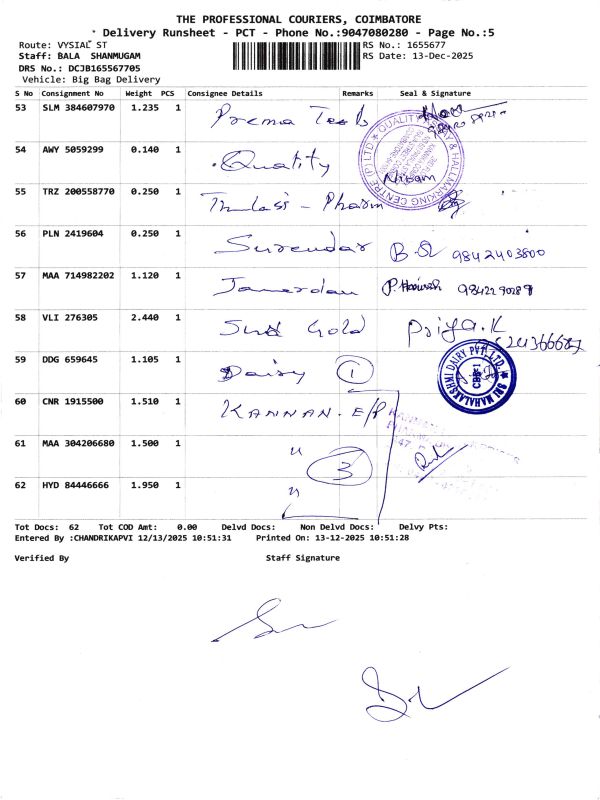 THE PROFESSIONAL COURIERS, COIMBATORE
* Delivery Runsheet - PCT - Phone No.:9047080280 - Page No.:5
Route: VYSIAL ST
RS No.: 1655677
Staff: BALA SHANMUGAM
RS Date: 13-Dec-2025
DRS No.: DCJB165567705
Vehicle: Big Bag Delivery
S No Consignment No Weight PCS Consignee Details Remarks Seal & Signature
53 SLM 384607970 1.235 1 Prema
54 AWY 5059299 0.140 1 Quatity Nizam
55 TRZ 200558770 0.250 1 Thulasi - Pharm
56 PLN 2419604 0.250 1 Surendar 9842403800
57 MAA 714982202 1.120 1 Janerdan P. Harish
58 VLI 276305 2.440 1 Gold Priya.K
59 DDG 659645 1.105 1 Daisy 1
SRI MAHALAKSHMI DAIRY PVT. LTD. CBE-1
60 CNR 1915500 1.510 1 KANNAN. E/P
61 MAA 304206680 1.500 1 " 3
62 HYD 84446666 1.950 1 "
Tot Docs: 62 Tot COD Amt: 0.00 Delvd Docs: Non Delvd Docs: Delvy Pts:
Entered By :CHANDRIKAPVI 12/13/2025 10:51:31 Printed On: 13-12-2025 10:51:28
Verified By Staff Signature